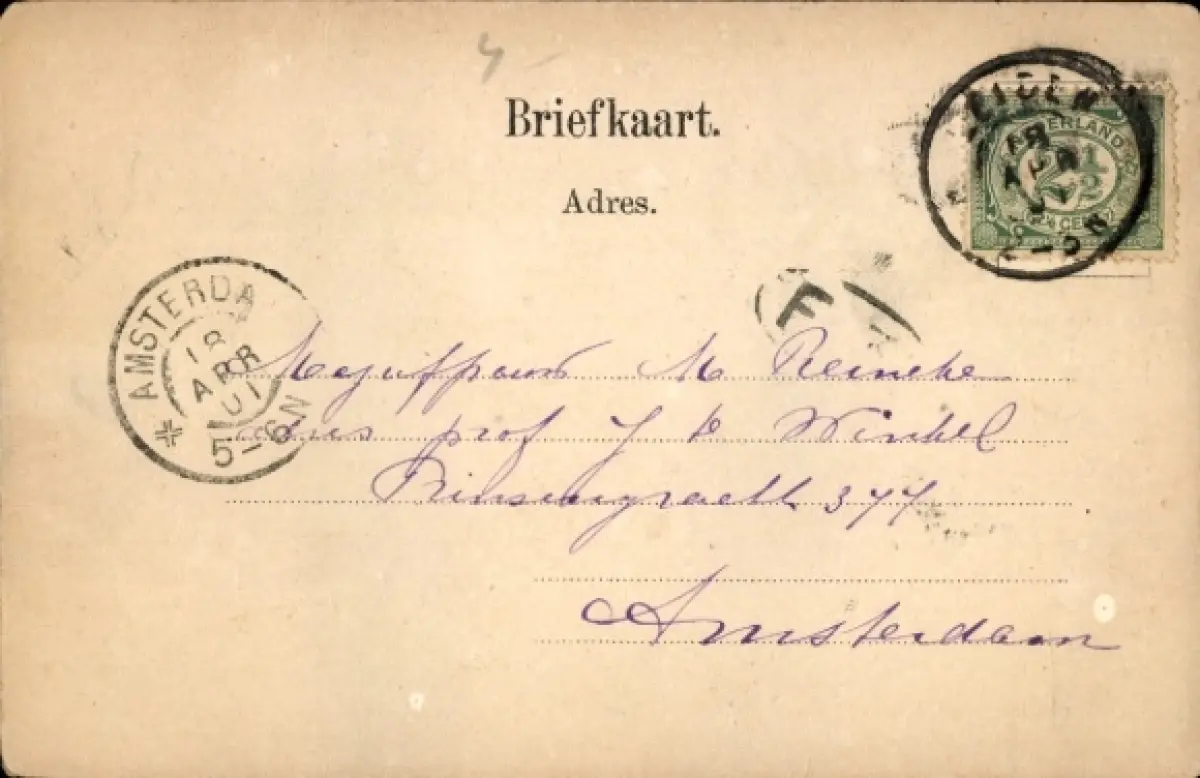 Briefkaart.
Adres.
LEIDEN
18 APR 01
NEDERLAND
2 1/2
CENT
F
AMSTERDA
18
APR
01
5-6N
Mejuffrouw M Reineke
prof J te Winkel
Prinsengracht 377
Amsterdam